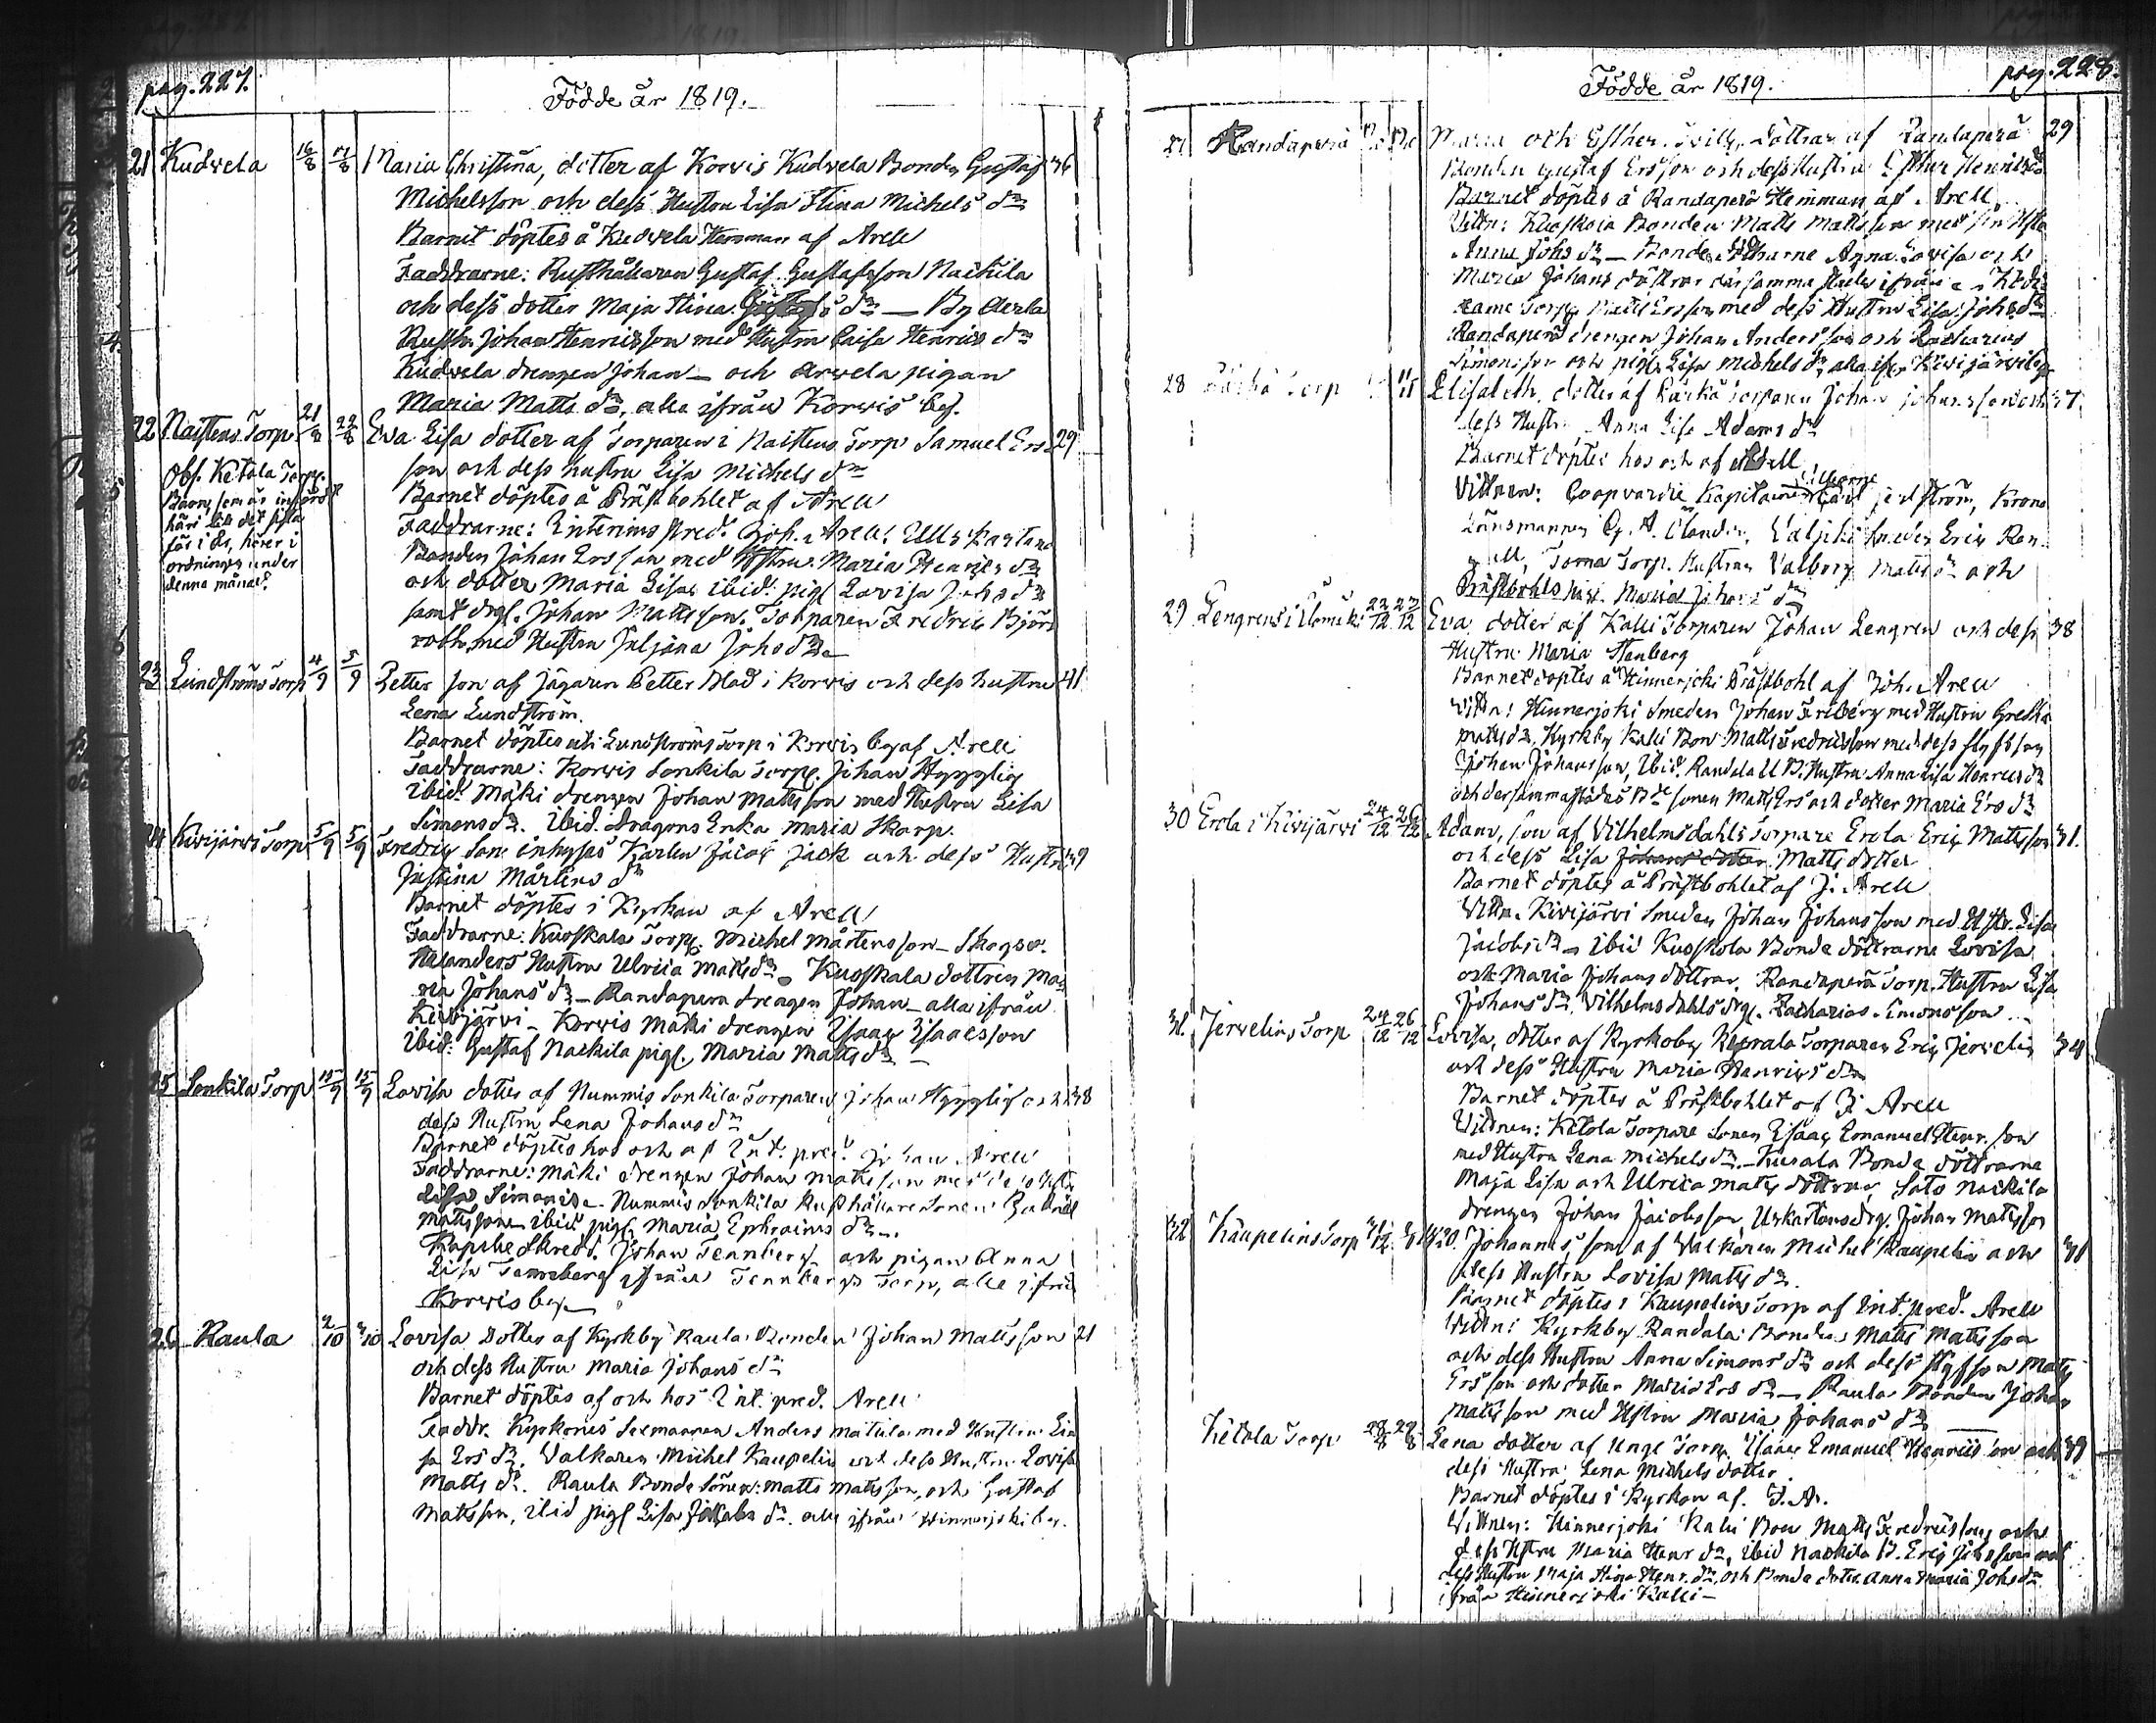 pag. 227.
Födde år 1819.
21 Kudvela 16/8 17/8 Maria Christina, dotter af Korvis Kudvela Bonden Gustaf 36
Michelsson och dess Hustru Lisa Stina Michels dr
Barnet döptes å Kudvela Hemman af Arell
Faddrarne: Rusthållaren Gustaf Gustafsson Naikila
och dess dotter Maja Stina dr — By
Rusth. Johan Henricsson med Hustru Caisa Henrics dr
Kudvela drengen Johan — och Arvela pigan
Maria Matts dr, alla ifrån Korwis by.
22 Naistens Torp 21/8 22/8 Eva Lisa dotter af Torparen i Naistens Torp Samuel Ers 29
son och dess hustru Lisa Michels dr
Barnet döptes å Prästbohlet af Arell
Faddrarne: Interims pred. Joh. Arell:
Bonden Johan Ersson med Hustru Maria Henrics dr
och dotter Maria Lisa, ibid. pig. Lovisa Johs dr
samt drg. Johan Mattsson. Torparen Fredric Björn
roth med Hustru Juljana Johs dr
Obs. Ketola Torps
Barn, som är infördt
häri till det sista
för i år, hörer i
ordningen under
denna månad.
23 Lundströms Torp 4/9 5/9 Petter son af Jägaren Petter Blad i Korvis och dess hustru 41
Lena Lundström.
Barnet döptes uti Lundströms Torp i Korvis by af Arell
Faddrarne: Korwis Sonkila Torp. Johan Hygglig
Ibid. Mäki drengen Johan Mattsson med Hustru Lisa
Simons dr. Ibid. dragons Enka Maria Skarp.
24 Kivijärvi Torp 5/9 5/9 Fredric son inhyses Karlen Jacob Jack och dess Hustru 39
Justina Mårtens dr
Barnet döptes i Kyrkan af Arell
Faddrarne: Kuoskala Torp. Michel Mårtensson — Skogsv.
Helanders Hustru Ulrica Matts dr — Kuoskala dottren Ma
ria Johans dr — Randapera drengen Johan — alla ifrån
Kivijärvi — Korwis Mäki drengen Isaac Isaacsson
Ibid: Gustaf Naikila pig. Maria Matts dr —
25 Sonkila Torp 15/9 15/9 Lovisa dotter af Nummis Sonkila Torparen Johan Hygglig och 38
dess Hustru Lena Johans dr
Barnet döptes hos och af Int. pred. Johan Arell
Faddrarne: Mäki drengen Johan Mattsson med dess Hstr
Lisa Simons dr. Nummis Sonkila Rusthållare sonen Gabriel
Mattsson ibid pig. Maria Ephraims dr.
Skredd. Johan Tennberg och pigan Anna
Lisa Tennberg ifrån Tennbergs Torp, alla ifrån
Korwis by —
26 Raula 2/10 3/10 Lovisa Dotter af Kyrkby Raula Bonden Johan Mattsson 21
och dess Hustru Maria Johans dr
Barnet döptes af och hos Int. pred. Arell
Faddr. Kyrkones Sexmannen Anders Matula med Hustru Li
sa Ers dr. Valkaren Michel Kaupelin och dess Hustru Lovisa
Matts dr. Raula Bonde Sönen: Matts Mattsson, och Gustaf
Mattsson, ibid pig. Lisa Jacobs dr. alla ifrån Hinnerjoki by.
pag. 228.
Födde år 1819.
27 Randaperä Maria och Esther Tvill. döttrar af Randaperä 29
Bonden Gustaf Ersson och dess Hustru Esther Henrics dr
Barnet döptes å Randaperä Hemman af Arell
Vittn: Kuoskola Bonden Matts Mattsson med sin Hstr
Anna Johs dr — Bonde döttrarne Anna Lovisa och
Maria Johans döttrar
Torp. Matts Ersson med dess Hustru Lisa Johs dr
Randaperä drengen Johan Andersson och Zacharias
Simonsson och pig. Lisa Michels dr, alla ifr. Kivijärvi by
28 Torp Elisabeth, dotter af Torparen Johan Johansson och 37
dess Hustru Anna Lisa Adams dr
Barnet döptes hos och af Arell
Vittnen: Coopvardie Kapitainen Carl Krono
Länsmannen Eric Ran
Torp. Hustrun Valborg Matts dr och
Prästbohls pig. Maria Johans dr
29 Lengrens i Ilomäki 22/12 23/12 Eva dotter af Kalli Torparen Johan Lengren och dess 38
Hustru Maria Stenberg
Barnet döptes å Hinnerjoki Prästbohl af Joh. Arell
Vittn: Hinnerjoki Smeden Johan Friberg med Hustru Gretha
Matts dr, Kyrkby Kalli Bon. Matts Fredricsson med dess styfson
Johan Johansson, Ibid. Randala U.B. Hustru Anna Lisa Henrics dr
och dersammastädes Bde sonen Matts Ers och dotter Maria Ers dr
30 Erola i Kivijärvi 24/12 26/12 Adam, son af Vilhelmsdahls Torpare Erola Eric Mattsson 31.
och dess Lisa Johans dotter Matts dotter
Barnet döptes å Prästbohlet af J. Arell
Vittn. Kivijärvi Smeden Johan Johansson med Hstr. Lisa
Jacobs dr — ibid Kuoskola Bonde döttrarne Lovisa
och Maria Johans döttrar, Randaperä Torp. Hustru Lisa
Johans dr, Vilhelmsdahls drg. Zacharias Simonsson
31. Jervelins Torp 24/12 26/12 Lovisa, dotter af Kyrkoby Torparen Eric Jervelin 34
och dess Hustru Maria Henrics dr
Barnet döptes å Prästbohlet af J. Arell
Vittnen: Ketola Torpare Sonen Isaac Emanuel Henr. son
med Hustru Lena Michels dr. — Kurala Bonde döttrarne
Maja Lisa och Ulrica Matts döttrar, Sato Naikila
drengen Johan Jacobsson, Urkartano drg. Johan Mattsson
32 Kaupelins Torp 31/12 1820. Johannes, son af Valkaren Michel Kaupelin och 31
dess Hustru Lovisa Matts dr.
Barnet döptes i Kaupelins Torp af Int. pred. Arell
Vittn: Kyrkby Randala Bonden Matts Mattsson
och dess Hustru Anna Simons dr och dess styfson Matts
Ersson och dotter Maria Ers dr — Raula Bonden Johan
Mattsson med Hstru Maria Johans dr
Ketola Torp 28/8 29/8 Lena dotter af unge Torp. Isaac Emanuel Henricsson och 39
dess Hustru Lena Michels dotter.
Barnet döptes i Kyrkan af J. A.
Vittnen: Hinnerjoki Kalli Bon Matts Fredricsson och
dess Hstru Maria Henr dr, ibid Naikila B. Eric Johsson med
dess Hustru Maja Stina Henr. dr, och Bonde dotter Anna Maria Johs dr
ifrån Hinnerjoki Kalli —